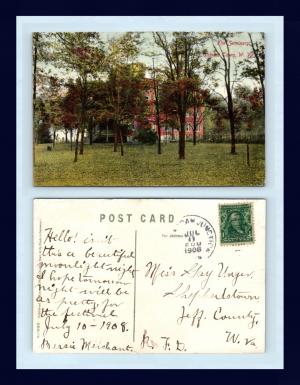 Old Seminary,
Town, W. Va.
POST CARD
JUL
11
1908
Hello! isn't
this a beautiful
moonlight night
I hope tomorrow
night will be
as pretty for
the festival
July 10-1908.
Merchant.
Miss Day Unger,
Shepherdstown
Jeff. County,
W. Va
R. F. D.